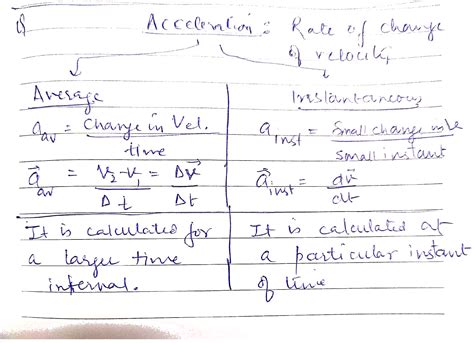 Acceleration : Rate of change
of velocity
Average
a_av = Change in Vel. / time
a⃗_av = V₂-V₁ / Δt = Δv⃗ / Δt
It is calculated for
a larger time
interval.
Instantaneous
a_inst = Small change in Vel / Small instant
a⃗_inst = dv⃗ / dt
It is calculated at
a particular instant
of time